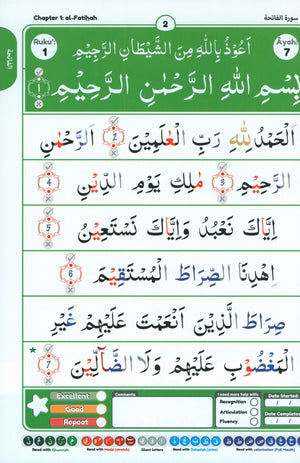 Chapter 1: al-Fatihah
2
سورة الفاتحة
Ruku': 1
Āyah: 7
الفاتحة
اَعُوْذُ بِاللّٰهِ مِنَ الشَّيْطَانِ الرَّجِيْمِ
بِسْمِ اللّٰهِ الرَّحْمٰنِ الرَّحِيْمِ ١
اَلْحَمْدُ لِلّٰهِ رَبِّ الْعٰلَمِيْنَ ٢ اَلرَّحْمٰنِ
الرَّحِيْمِ ٣ مٰلِكِ يَوْمِ الدِّيْنِ ٤
اِيَّاكَ نَعْبُدُ وَاِيَّاكَ نَسْتَعِيْنُ ٥
اِهْدِنَا الصِّرَاطَ الْمُسْتَقِيْمَ ٦
صِرَاطَ الَّذِيْنَ اَنْعَمْتَ عَلَيْهِمْ غَيْرِ
الْمَغْضُوْبِ عَلَيْهِمْ وَلَا الضَّآلِّيْنَ ٧
Excellent
Good
Repeat
Comments:
I need more help with:
Recognition
Articulation
Fluency
Date Started:
/ /
Date Completed:
/ /
Read with Ghunnah
Read with Madd (stretch)
Silent letters
Read with Qalqalah (echo)
Read with velarisation (Full Mouth)